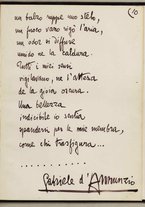 (10
un balzo ruppe uno stelo,
un fuoco vano rigò l'aria,
un odor si diffuse
umido ne la caldura.
Tutti i miei sensi
vigilavano, ne l'attesa
de la gioia oscura.
Una bellezza
indicibile io sentia
spandersi per le mie membra,
come chi trasfigura...
Gabriele d'Annunzio